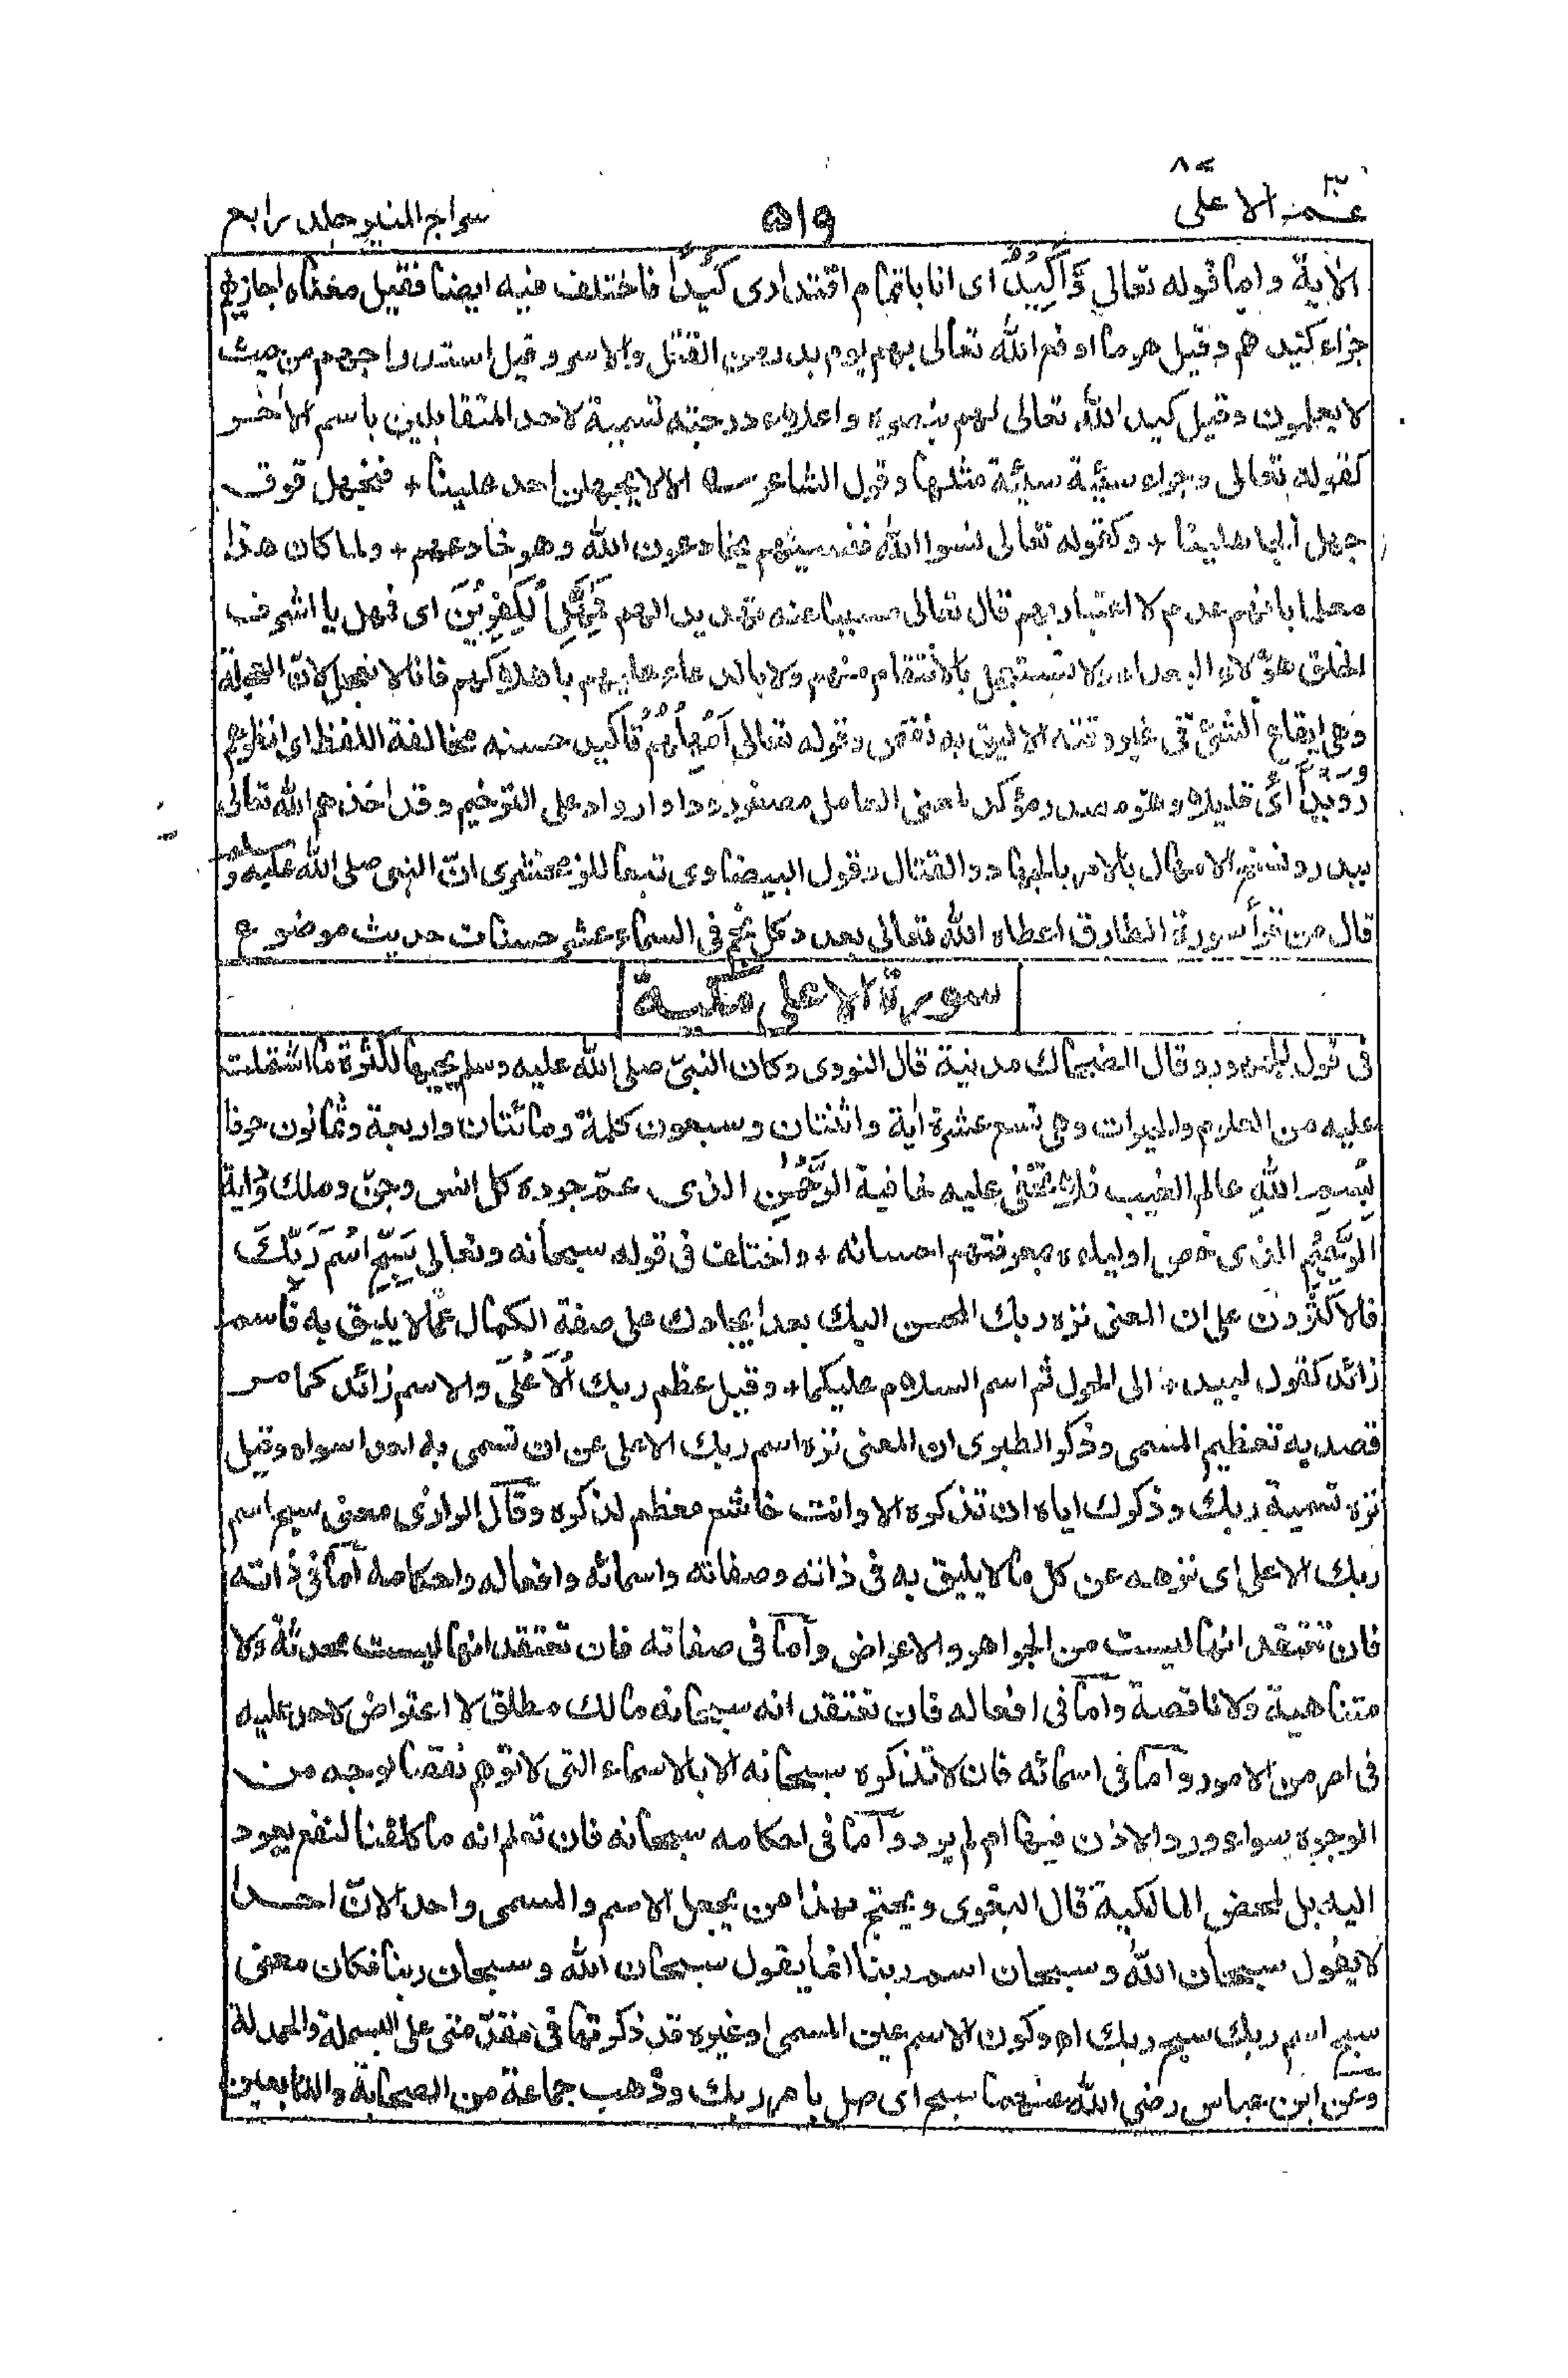 عمّ ٣٠ الاعلى ٨٧
٥١٩
سراج المنير جلد رابع
الاٰية واما قوله تعالي وَّاَكِيْدُ اى انا باتمام اقتدارى كَيْدًا فاختلف فيه ايضا فقيل معناه اجازيهم
جزاء كيدهم وقيل هو ما اوقع الله تعالى بهم يوم بدر من القتل والاسر وقيل استدراجهم من حيث
لا يعلمون وقيل كيد الله تعالى لهم بنصره واعلاء درجته تسمية لاحد المتقابلين باسم الاٰخر
كقوله تعالى وجزاء سيّئة سيئة مثلها وقول الشاعر سه الا لا يجهلن احد علينا + فنجهل فوق
جهل الجاهلينا + وكقوله تعالى نسوا الله فنسيهم يخادعون الله وهو خادعهم + ولما كان هذا
معلما بانهم عدم لا اعتبار بهم قال تعالى مسببا عنه تهديدا لهم فَمَهِّلِ الْكٰفِرِيْنَ اى فمهل يا اشرف
الخلق هؤلاء البعداء ولا تستعجل بالانتقام منهم ولا بالدعاء عليهم باهلاكهم فانا لا نعجل لانّ العجلة
وهى ايقاع الشئ فى غير وقته الاليق به نقص وقوله تعالى اَمْهِلْهُمْ تأكيد حسنه مخالفة اللفظ اى انظرهم
رُوَيْدًا اى قليلا وهو مصدر مؤكد لمعنى العامل مصغر رود او ارواد على الترخيم وقد اخذهم الله تعالى
ببدر ونسخ الامهال بالامر بالجهاد والقتال وقول البيضاوى تبعا للزمخشرى انّ النبى صلى الله عليه وسلم
قال من قرأ سورة الطارق اعطاه الله تعالى بعدد كل نجم فى السماء عشر حسنات حديث موضوع
سورة الاعلى مكية
فى قول الجمهور وقال الضحاك مدنية قال النووى وكان النبىّ صلى الله عليه وسلم يحبها لكثرة ما اشتملت
عليه من العلوم والخيرات وهى تسع عشرة اٰية واثنتان وسبعون كلمة ومائتان واربعة وثمانون حرفا
بِسْمِ اللهِ عالم الغيب فلا تخفى عليه خافية الرَّحْمٰنِ الذى عمّ جوده كل انس وجنّ وملك وّاٰية
الرَّحِيْمِ الذى خص اولياءه بمعرفتهم احسانه + واختلف فى قوله سبحانه وتعالى سَبِّحِ اسْمَ رَبِّكَ
فالاكثرون على ان المعنى نزه ربك المحسن اليك بعد ايجادك على صفة الكمال عمّا لا يليق به فاسم
زائد كقول لبيد + الى الحول ثم اسم السلام عليكما + وقيل عظم ربك الْاَعْلَى والاسم زائد كما مر
قصد به تعظيم المسمى وذكر الطبرى ان المعنى نزه اسم ربك الاعلى عن ان تسمى به احدا سواه وقيل
نزه تسمية ربك وذكرك اياه ان تذكره الا وانت خاشع معظم لذكره وقال الرازى معنى سبح اسم
ربك الاعلى اى نزهه عن كل ما لا يليق به فى ذاته وصفاته واسمائه وافعاله واحكامه اما فى ذاته
فان تعتقد انها ليست من الجواهر والاعراض واما فى صفاته فان تعتقد انها ليست محدثة ولا
متناهية ولا ناقصة واما فى افعاله فان تعتقد انه سبحانه مالك مطلق لا اعتراض لاحد عليه
فى امر من الامور واما فى اسمائه فان لا تذكره سبحانه الا بالاسماء التى لا توهم نقصا لوجه من
الوجوه سواء ورد الاذن فيها ام لم يرد واما فى احكامه سبحانه فان تعلم انه ما كلفنا لنفع يعود
اليه بل لمحض المالكية قال البغوى ويحتج بهذا من يجعل الاسم والمسمى واحد الانّ احدا
لا يقول سبحان الله وسبحان اسم ربنا انما يقول سبحان الله وسبحان ربنا فكان معنى
سبح اسم ربك سبح ربك اه وكون الاسم عين المسمى او غيره قد ذكرتها فى مقدّمتى على البسملة والحمدلة
وعن ابن عباس رضى الله عنهما سبح اى صل بامر ربك وذهب جماعة من الصحابة والتابعين